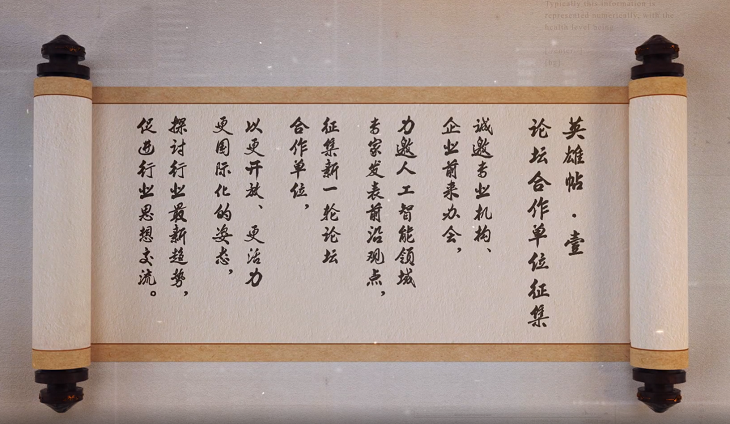 英雄帖·壹
论坛合作单位征集
诚邀专业机构、
企业前来办会，
力邀人工智能领域
专家发表前沿观点，
征集新一轮论坛
合作单位，
以更开放、更活力
更国际化的姿态，
探讨行业最新趋势，
促进行业思想交流。
Typically this information is
represented numerically, with the
health level being